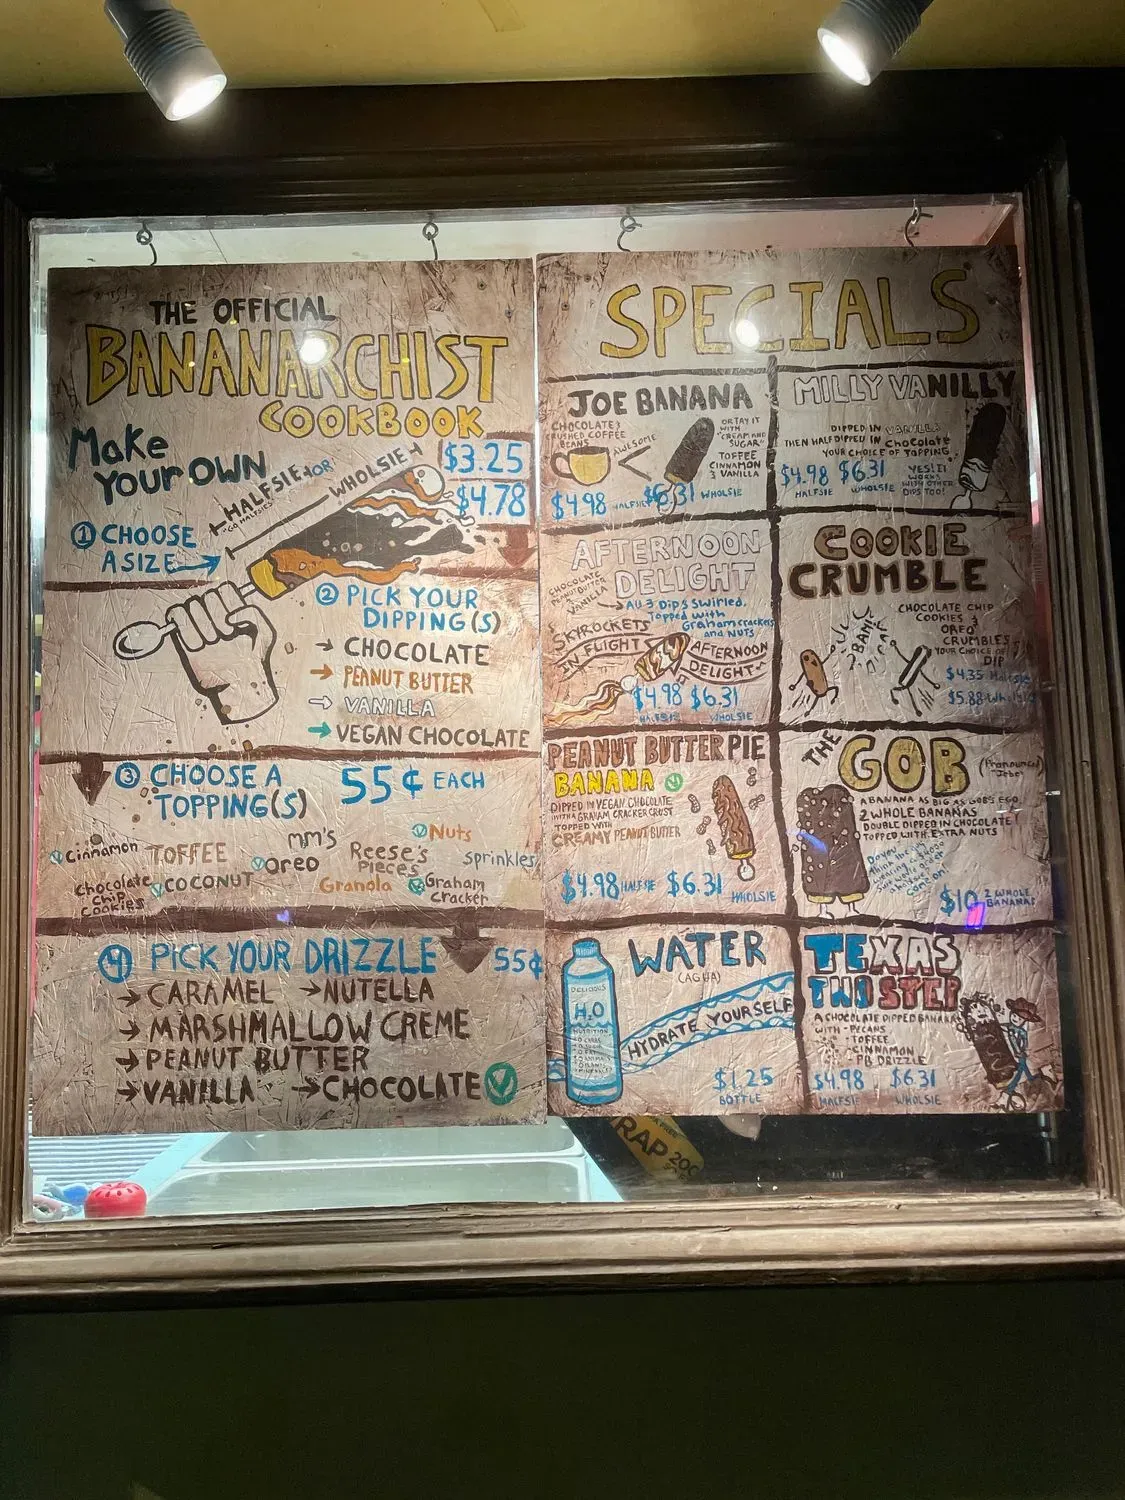 THE OFFICIAL
BANANARCHIST
COOKBOOK
Make
YOUR OWN
HALFSIE OR
"GO HALFSIES"
WHOLSIE
$3.25
$4.78
① CHOOSE
A SIZE
② PICK YOUR
DIPPING(S)
→ CHOCOLATE
→ PEANUT BUTTER
→ VANILLA
→ VEGAN CHOCOLATE
③ CHOOSE A
TOPPING(S)
55¢ EACH
Cinnamon
TOFFEE
MM'S
Oreo
Nuts
Reese's
Pieces
sprinkles
Chocolate
Chip
Cookies
COCONUT
Granola
Graham
Cracker
④ PICK YOUR DRIZZLE 55¢
→ CARAMEL → NUTELLA
→ MARSHMALLOW CREME
→ PEANUT BUTTER
→ VANILLA → CHOCOLATE V
SPECIALS
JOE BANANA
CHOCOLATE &
CRUSHED COFFEE
BEANS
AWESOME
OR TRY IT
WITH
"CREAM AND
SUGAR"
TOFFEE
CINNAMON
& VANILLA
$4.98 HALFSIE $6.31 WHOLSIE
MILLY VANILLY
DIPPED IN VANILLA
THEN HALF DIPPED IN Chocolate
YOUR CHOICE OF TOPPING
$4.98 $6.31
HALFSIE WHOLSIE
YES! IT
WORKS
WITH OTHER
DIPS TOO!
AFTERNOON
DELIGHT
CHOCOLATE
PEANUT BUTTER
VANILLA
All 3 Dips Swirled,
Topped with
Graham crackers
and NUTS
SKYROCKETS
IN FLIGHT
AFTERNOON
DELIGHT
$4.98 $6.31
HALFSIE WHOLSIE
COOKIE
CRUMBLE
BAM!
CHOCOLATE CHIP
COOKIES &
OREO
CRUMBLES
YOUR CHOICE OF
DIP
$4.35 Halfsie
$5.88 Wholsie
PEANUT BUTTER PIE
BANANA V
DIPPED IN VEGAN CHOCOLATE
WITH A GRAHAM CRACKER CRUST
TOPPED WITH
CREAMY PEANUT BUTTER
$4.98 HALFSIE $6.31 WHOLSIE
THE
GOB
(Pronounced
"Jobe")
A BANANA AS BIG AS GOB'S EGO.
2 WHOLE BANANAS
DOUBLE DIPPED IN CHOCOLATE!
TOPPED WITH EXTRA NUTS
$10 2 WHOLE
BANANAS
WATER
(AGUA)
DELICIOUS
H2O
NUTRITION
HYDRATE YOURSELF
$1.25
BOTTLE
TEXAS
TWO STEP
A CHOCOLATE DIPPED BANANA
WITH - PECANS
- TOFFEE
- CINNAMON
- PB DRIZZLE
$4.98 $6.31
HALFSIE WHOLSIE
RAP 200